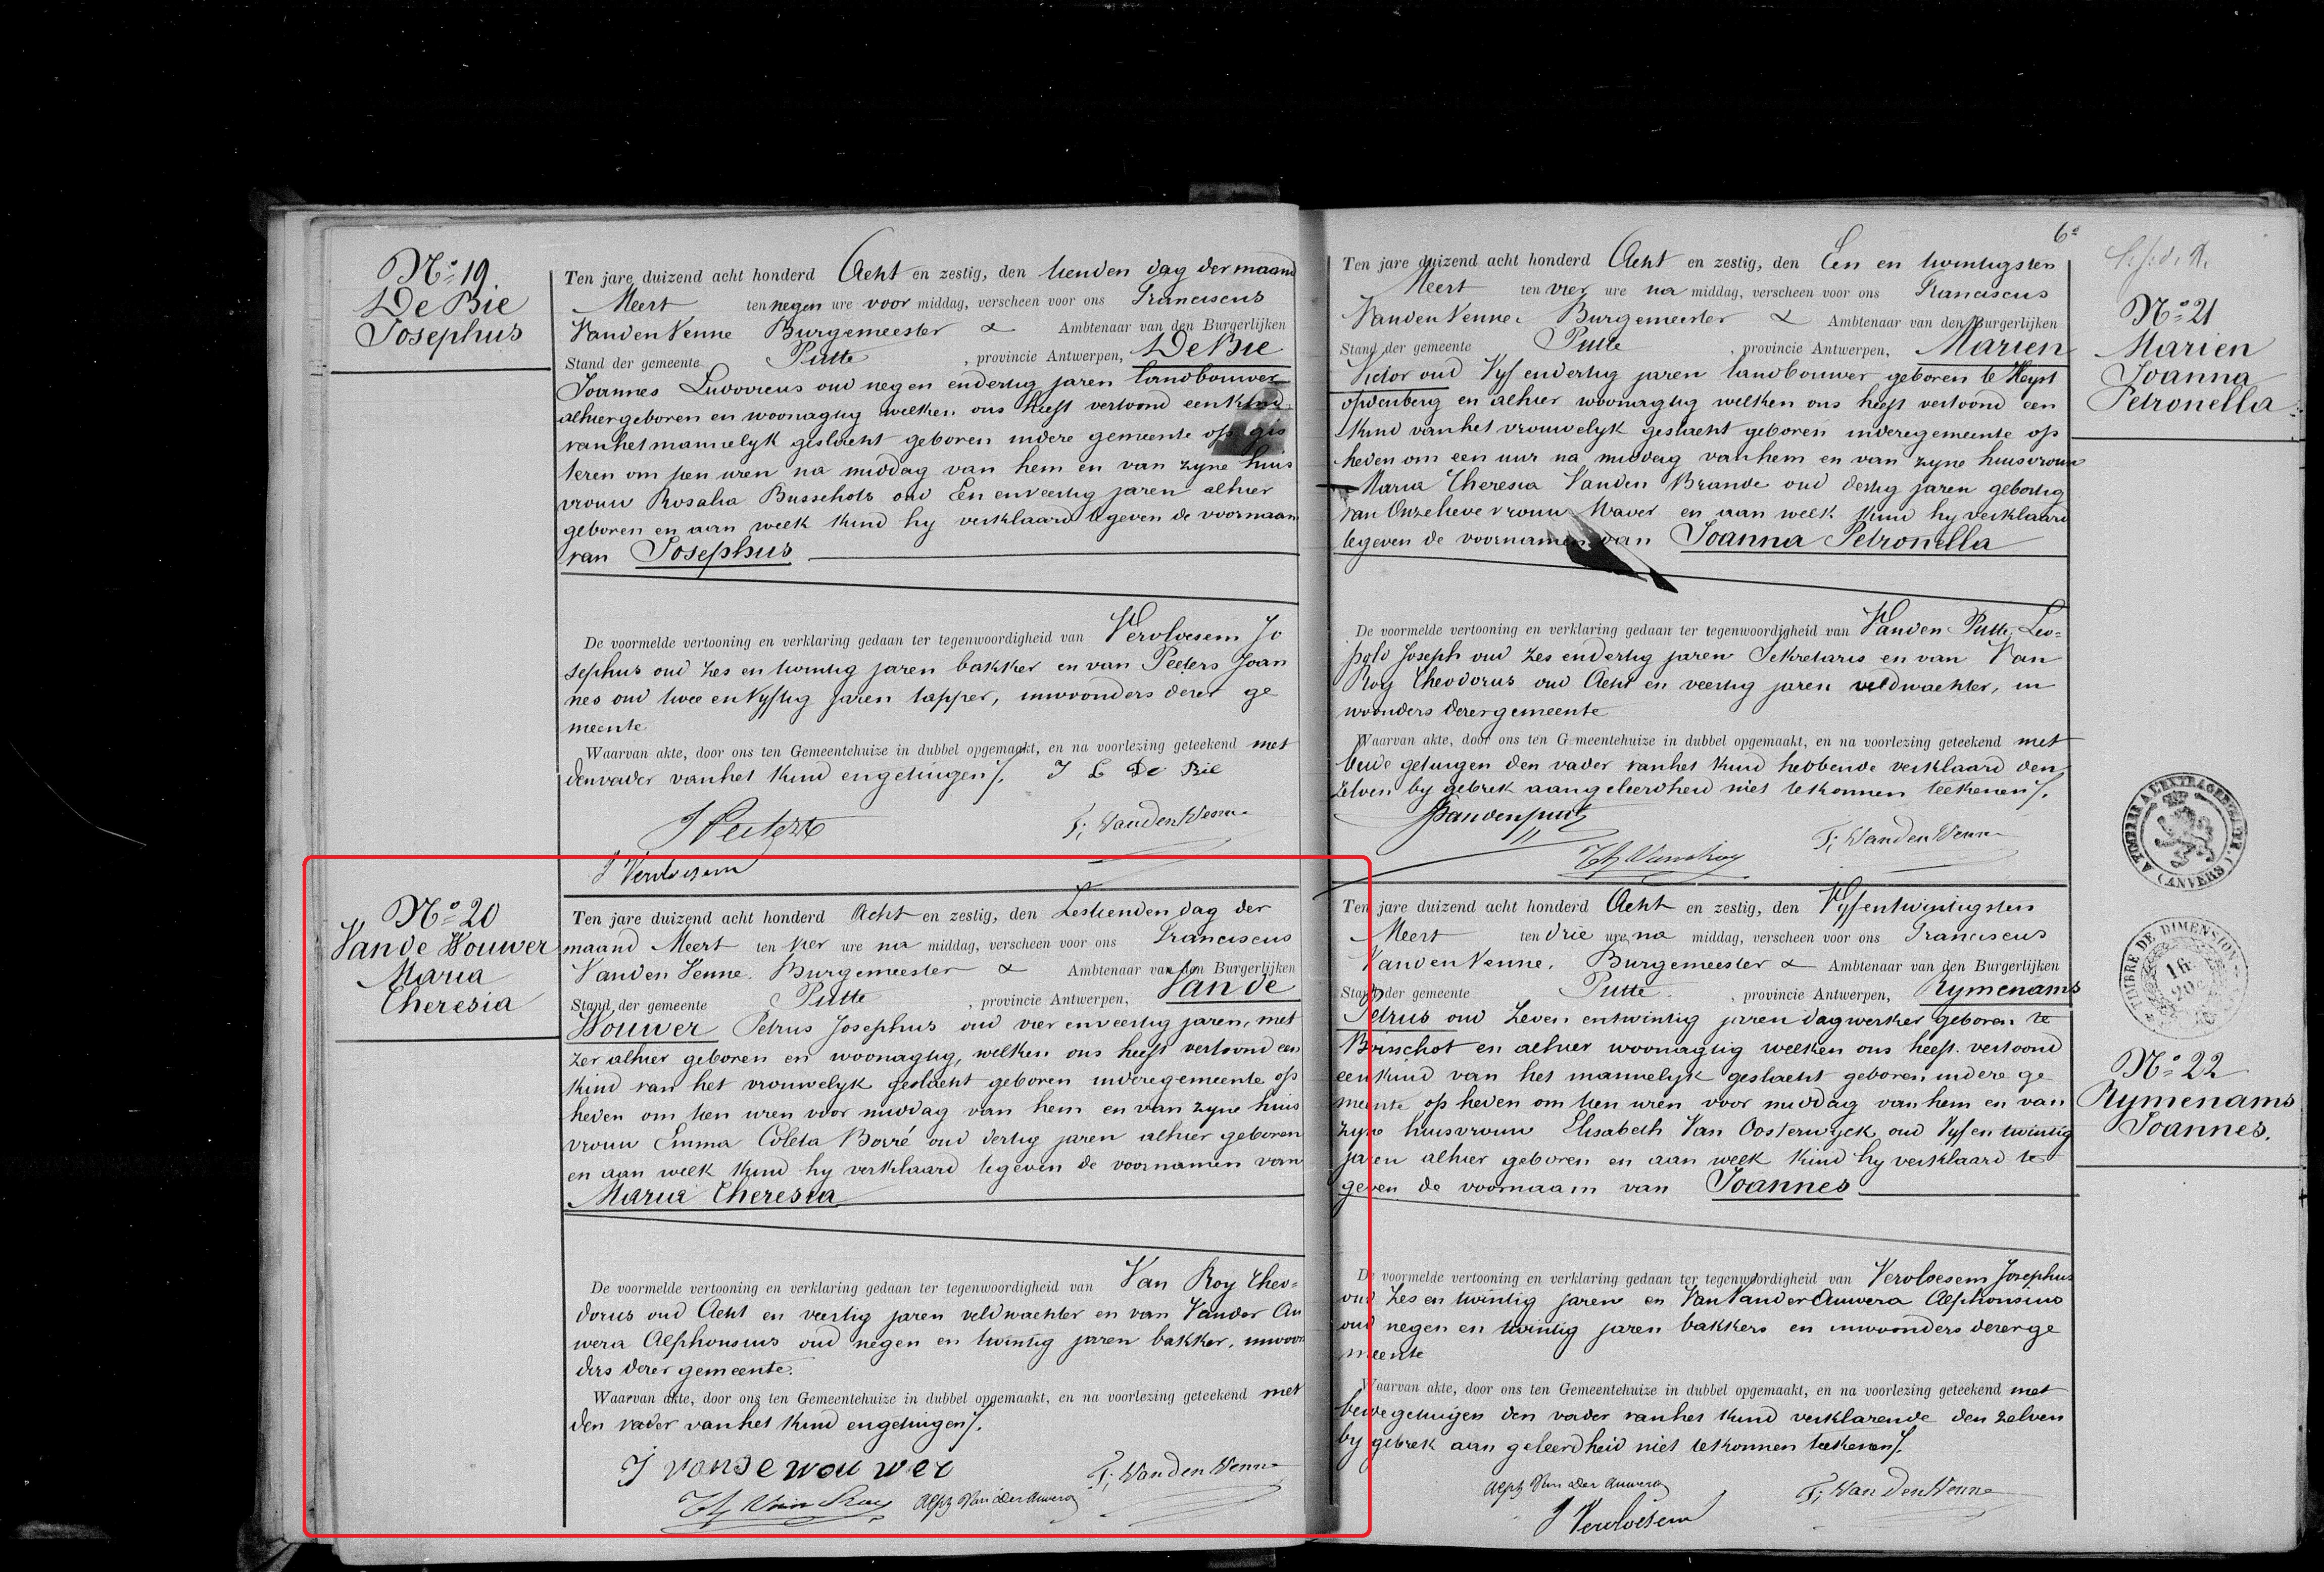 Nº 19
De Bie
Josephus
Ten jare duizend acht honderd Acht en zestig, den tienden dag der maand
Meert ten negen ure voor middag, verscheen voor ons Franciscus
Vanden Venne Burgemeester & Ambtenaar van den Burgerlijken
Stand der gemeente Putte, provincie Antwerpen, De Bie
Joannes Ludovicus oud negen endertig jaren landbouwer
alhier geboren en woonagtig welken ons heeft vertoond een kind
van het mannelyk geslacht geboren indere gemeente op gis
teren om tien uren na middag van hem en van zyne huis
vrouw Rosalia Busschots oud Een enveertig jaren alhier
geboren en aan welk kind hy verklaard tegeven de voornaam
van Josephus
De voormelde vertooning en verklaring gedaan ter tegenwoordigheid van Vervloesem Jo
sephus oud zes en twintig jaren bakker en van Peeters Joan
nes oud twee en Vyftig jaren tapper, inwoonders derer ge
meente
Waarvan akte, door ons ten Gemeentehuize in dubbel opgemaakt, en na voorlezing geteekend met
den vader van het kind en getuigen /.
J L De Bie
J Peeters
F; VandenVenne
J Vervloesem
Nº 20
Van de Wouwer
Maria
Theresia
Ten jare duizend acht honderd Acht en zestig, den Zestienden dag der
maand Meert ten vier ure na middag, verscheen voor ons Franciscus
Vanden Venne. Burgemeester & Ambtenaar van den Burgerlijken
Stand der gemeente Putte, provincie Antwerpen, Van de
Wouwer Petrus Josephus oud vier enveertig jaren, met
zer alhier geboren en woonagtig, welken ons heeft vertoond een
kind van het vrouwelyk geslacht geboren inderegemeente op
heden om tien uren voor middag van hem en van zyne huis
vrouw Emma Coleta Borré oud dertig jaren alhier geboren
en aan welk kind hy verklaard tegeven de voornamen van
Maria Theresia
De voormelde vertooning en verklaring gedaan ter tegenwoordigheid van Van Roy Theo=
dorus oud Acht en veertig jaren veldwachter en van Vander Au
wera Alphonsius oud negen en twintig jaren bakker, inwoon
ders derer gemeente.
Waarvan akte, door ons ten Gemeentehuize in dubbel opgemaakt, en na voorlezing geteekend met
den vader van het kind en getuigen /.
J vandewouwer
F; VandenVenne
Th Van Roy
Alph Van der Auwera
6e
Nº 21
Marien
Joanna
Petronella
Ten jare duizend acht honderd Acht en zestig, den Een en twintigsten
Meert ten vier ure na middag, verscheen voor ons Franciscus
Vanden Venne. Burgemeester & Ambtenaar van den Burgerlijken
Stand der gemeente Putte, provincie Antwerpen, Marien
Victor oud Vyf endertig jaren landbouwer geboren te Heyst
opdenberg en alhier woonagtig welken ons heeft vertoond een
kind van het vrouwelyk geslacht geboren inderegemeente op
heden om een uur na middag van hem en van zyne huisvrouw
Maria Theresia Vanden Brande oud dertig jaren geboortig
van Onzelieve vrouw Waver en aan welk kind hy verklaard
tegeven de voornamen van Joanna Petronella
De voormelde vertooning en verklaring gedaan ter tegenwoordigheid van Vanden Putte Leo=
pold Joseph oud zes endertig jaren Sekretaris en van Van
Roy Theodorus oud Acht en veertig jaren veldwachter, in
woonders derer gemeente
Waarvan akte, door ons ten Gemeentehuize in dubbel opgemaakt, en na voorlezing geteekend met
beide getuigen den vader van het kind hebbende verklaard den
zelven by gebrek aan geleerdheid niet tekonnen teekenen /.
F; VandenVenne
Th Van Roy
TIMBRE A L'EXTRAORDIN.
(ANVERS)
TIMBRE DE DIMENSION
Nº 22
Rymenams
Joannes.
Ten jare duizend acht honderd Acht en zestig, den Vyfentwintigsten
Meert ten drie ure na middag, verscheen voor ons Franciscus
Vanden Venne. Burgemeester & Ambtenaar van den Burgerlijken
Stand der gemeente Putte, provincie Antwerpen, Rymenams
Petrus oud zeven entwintig jaren dagwerker geboren te
Boisschot en alhier woonagtig welken ons heeft vertoond
een kind van het mannelyk geslacht geboren indere ge
meente op heden om tien uren voor middag van hem en van
zyne huisvrouw Elisabeth Van Oosterwyck oud Vyf en twintig
jaren alhier geboren en aan welk kind hy verklaard te
geven de voornaam van Joannes
De voormelde vertooning en verklaring gedaan ter tegenwoordigheid van Vervloesem Josephus
oud zes en twintig jaren en Van VanderAuwera Alphonsius
oud negen en twintig jaren bakkers en inwoonders derer ge
meente
Waarvan akte, door ons ten Gemeentehuize in dubbel opgemaakt, en na voorlezing geteekend met
beide getuigen den vader van het kind verklarende den zelven
by gebrek aan geleerdheid niet tekonnen teekenen /.
Alph Van der Auwera
F; VandenVenne
J Vervloesem